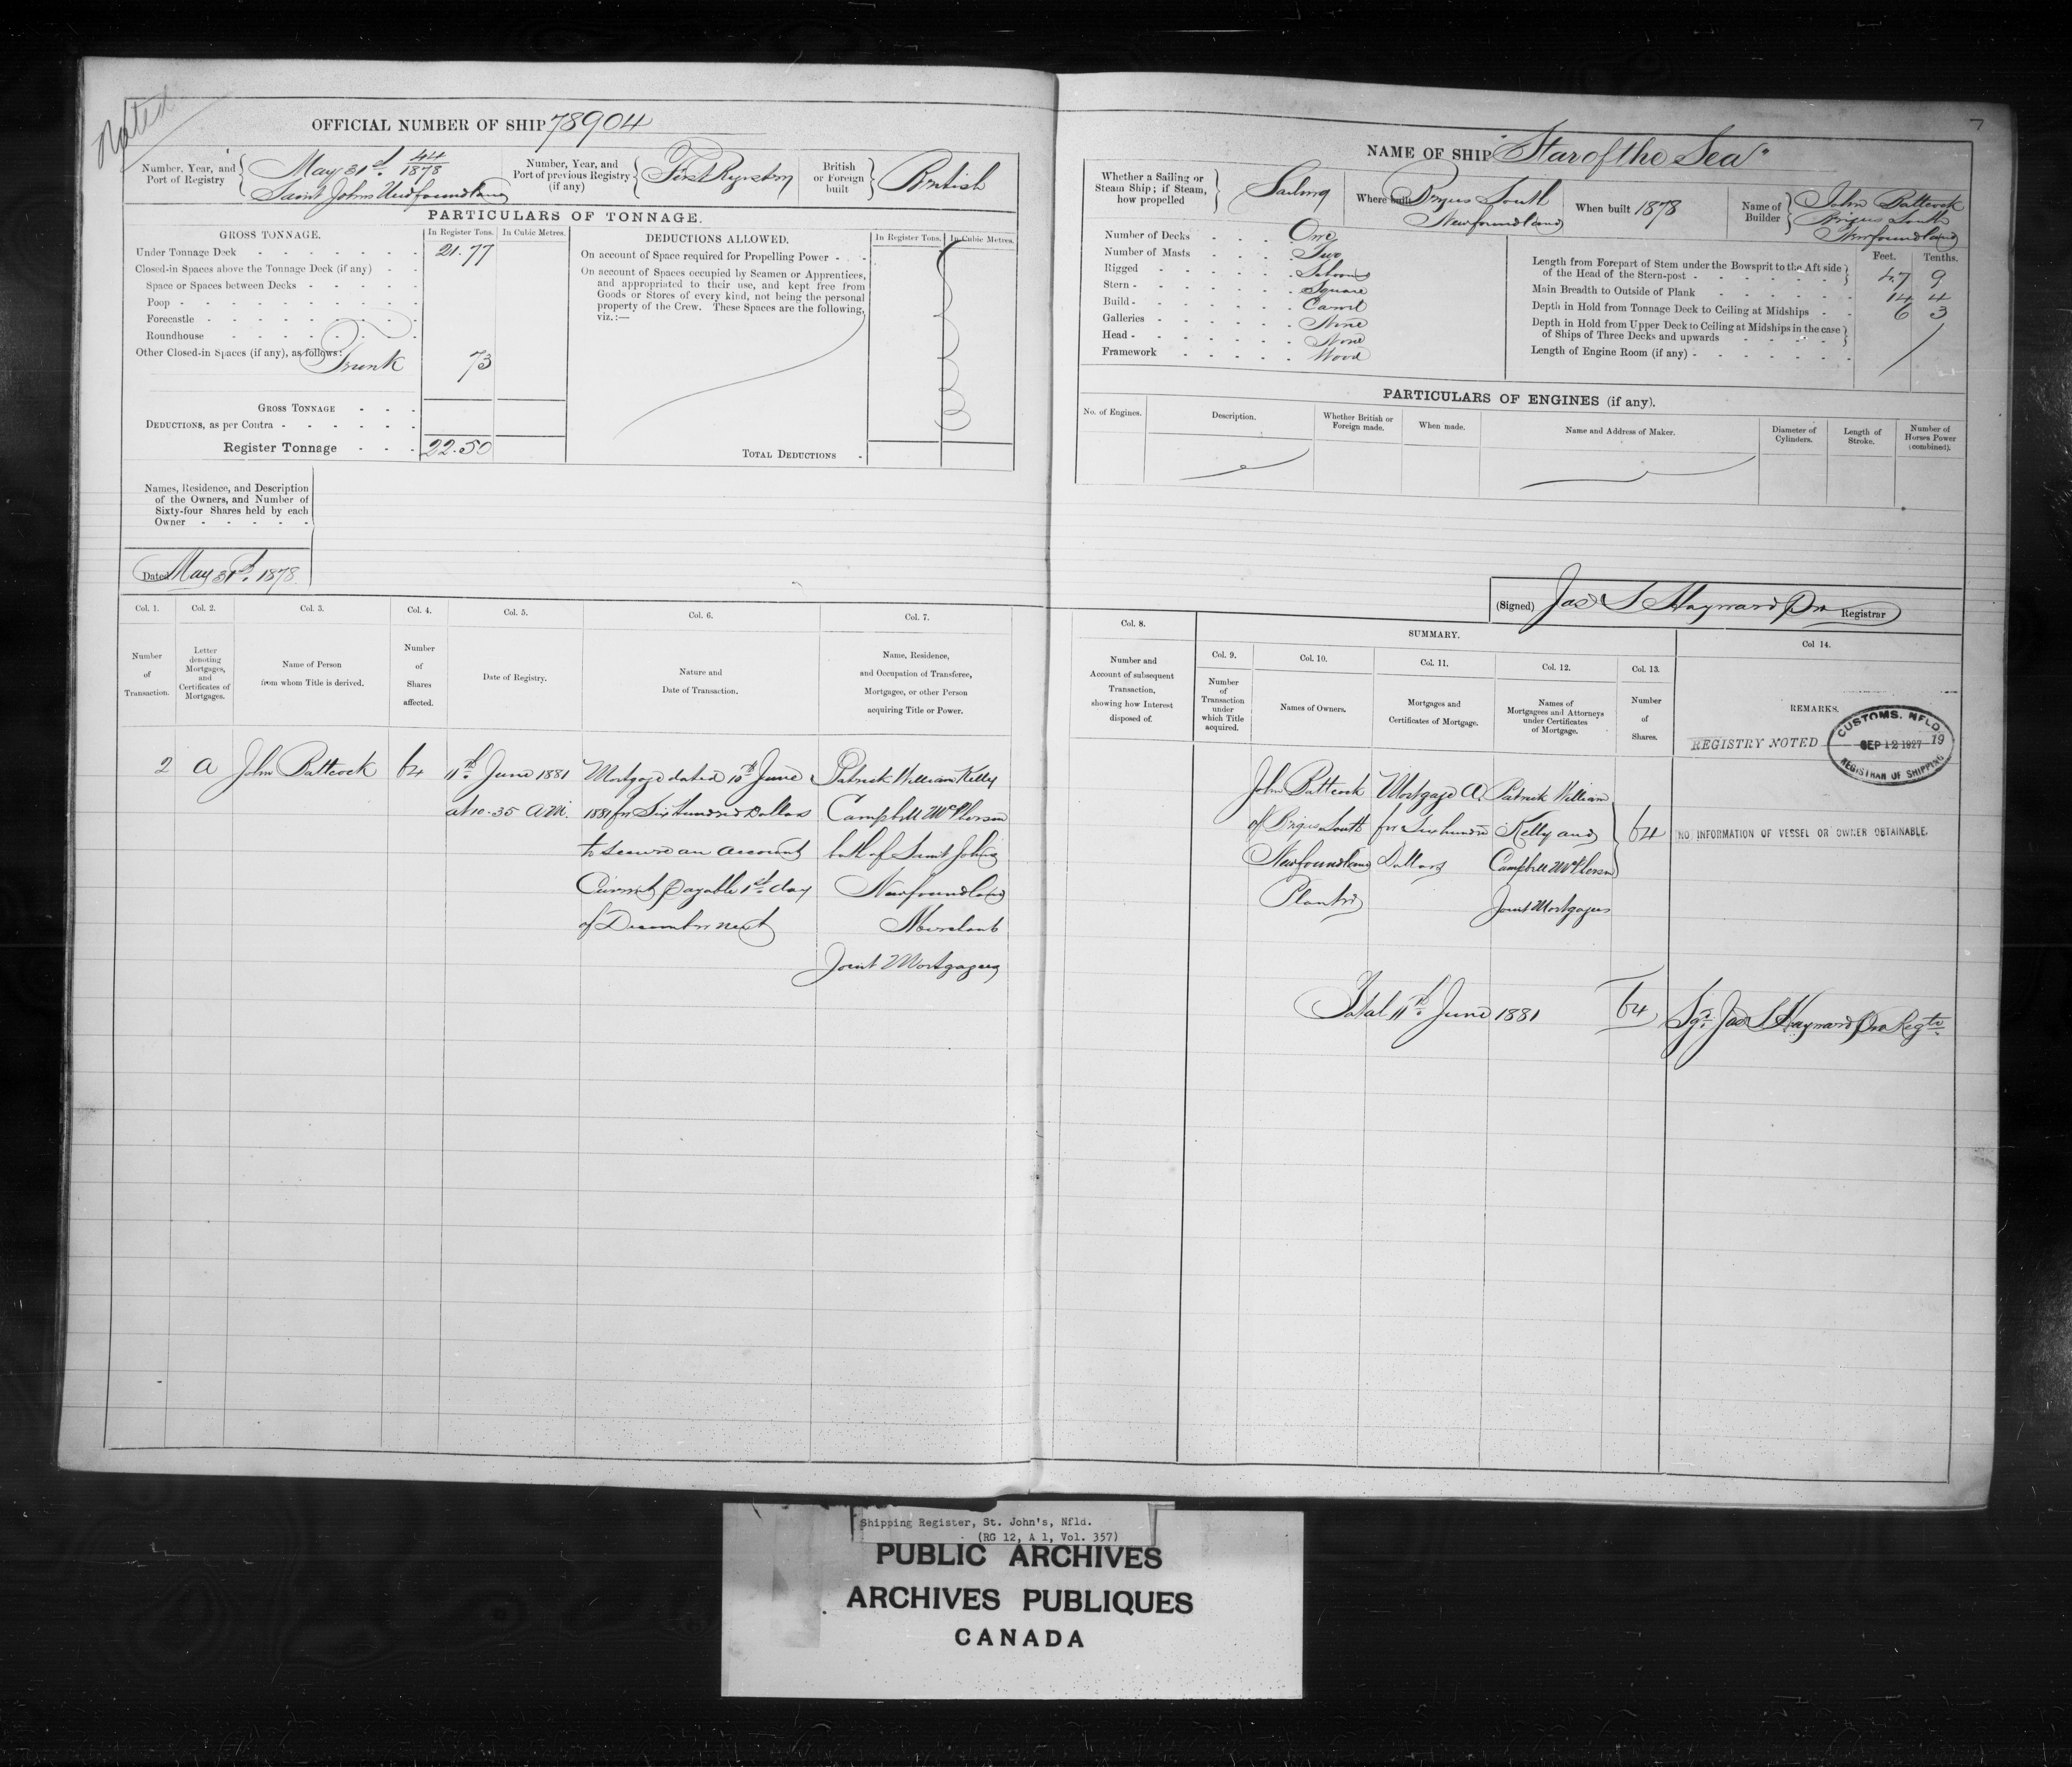 Noted
OFFICIAL NUMBER OF SHIP 78904
Number, Year, and Port of Registry
May 31st 44/1878
Saint Johns Newfoundland
Number, Year, and Port of previous Registry (if any)
First Registry
British or Foreign built
British
PARTICULARS OF TONNAGE.
GROSS TONNAGE.
In Register Tons.
In Cubic Metres.
Under Tonnage Deck 21.77
Closed-in Spaces above the Tonnage Deck (if any)
Space or Spaces between Decks
Poop
Forecastle
Roundhouse
Other Closed-in Spaces (if any), as follows:
Trunk 73
GROSS TONNAGE
DEDUCTIONS, as per Contra
Register Tonnage 22.50
DEDUCTIONS ALLOWED.
In Register Tons.
In Cubic Metres.
On account of Space required for Propelling Power
On account of Spaces occupied by Seamen or Apprentices,
and appropriated to their use, and kept free from
Goods or Stores of every kind, not being the personal
property of the Crew. These Spaces are the following,
viz.:—
TOTAL DEDUCTIONS
Names, Residence, and Description
of the Owners, and Number of
Sixty-four Shares held by each
Owner
Dated May 31st. 1878.
Col. 1.
Number of Transaction.
Col. 2.
Letter denoting Mortgages, and Certificates of Mortgages.
Col. 3.
Name of Person from whom Title is derived.
Col. 4.
Number of Shares affected.
Col. 5.
Date of Registry.
Col. 6.
Nature and Date of Transaction.
Col. 7.
Name, Residence,
and Occupation of Transferee,
Mortgagee, or other Person
acquiring Title or Power.
2 A John Battcock 64
11th June 1881
at 10.35 A.M.
Mortgage dated 10th June
1881 for Six Hundred Dollars
to secure an account
Current payable 1st day
of December next
Patrick William Kelly
Campbell McPherson
both of Saint Johns
Newfoundland
Merchants
Joint Mortgagees
7
NAME OF SHIP "Star of the Sea"
Whether a Sailing or Steam Ship; if Steam, how propelled
Sailing
Where built
Brigus South
Newfoundland
When built 1878
Name of Builder
John Battcock
Brigus South
Newfoundland
Number of Decks One
Number of Masts Two
Rigged Schooner
Stern Square
Build Carvel
Galleries None
Head None
Framework Wood
Feet. Tenths.
Length from Forepart of Stem under the Bowsprit to the Aft side
of the Head of the Stern-post 47 9
Main Breadth to Outside of Plank 14 4
Depth in Hold from Tonnage Deck to Ceiling at Midships 6 3
Depth in Hold from Upper Deck to Ceiling at Midships in the case
of Ships of Three Decks and upwards
Length of Engine Room (if any)
PARTICULARS OF ENGINES (if any).
No. of Engines.
Description.
Whether British or Foreign made.
When made.
Name and Address of Maker.
Diameter of Cylinders.
Length of Stroke.
Number of Horses Power (combined).
(Signed) Jas S Hayward Pro Registrar
Col. 8.
Number and
Account of subsequent
Transaction,
showing how Interest
disposed of.
SUMMARY.
Col. 9.
Number of Transaction under which Title acquired.
Col. 10.
Names of Owners.
Col. 11.
Mortgages and Certificates of Mortgage.
Col. 12.
Names of Mortgagees and Attorneys under Certificates of Mortgage.
Col. 13.
Number of Shares.
Col 14.
REMARKS.
REGISTRY NOTED 19
CUSTOMS, NFLD.
SEP 12 1927
REGISTRAR OF SHIPPING
John Battcock
of Brigus South
Newfoundland
Planter
Mortgage A.
for Six hundred
Dollars
Patrick William
Kelly and
Campbell McPherson
Joint Mortgagees
64
NO INFORMATION OF VESSEL OR OWNER OBTAINABLE.
Total 11th June 1881 64
Sgd. Jas S Hayward Pro Regtr.
Shipping Register, St. John's, Nfld.
(RG 12, A 1, Vol. 357)
PUBLIC ARCHIVES
ARCHIVES PUBLIQUES
CANADA